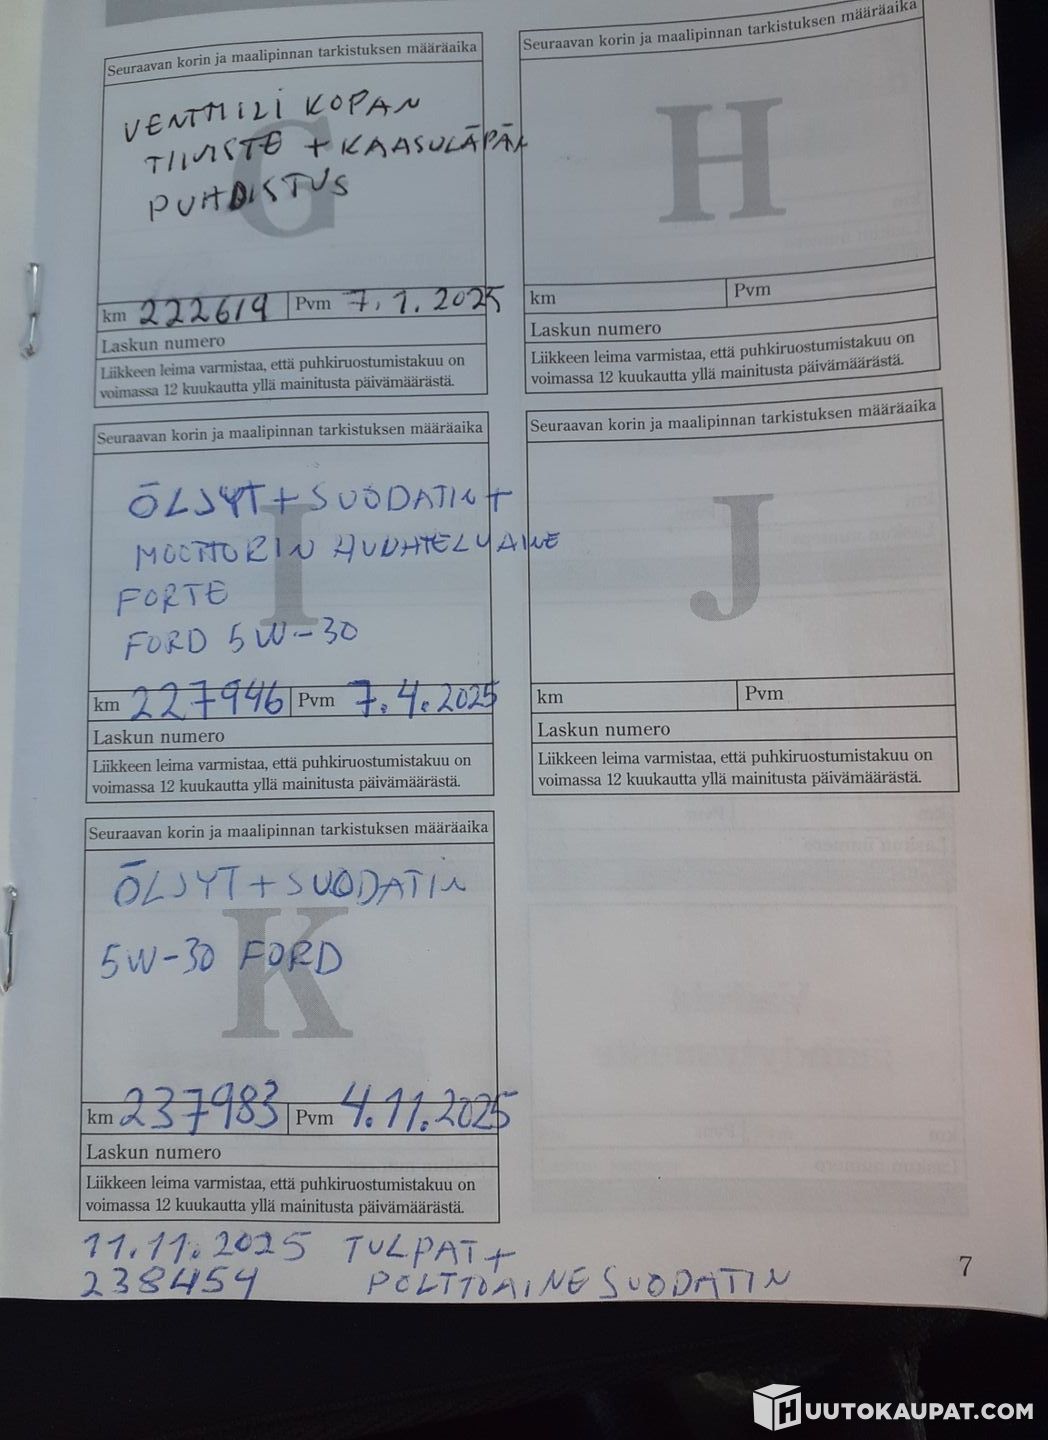 Seuraavan korin ja maalipinnan tarkistuksen määräaika
VENTTIILI KOPAN
TIIVISTE + KAASULÄPÄN
PUHDISTUS
G
km 222619 Pvm 7.1.2025
Laskun numero
Liikkeen leima varmistaa, että puhkiruostumistakuu on
voimassa 12 kuukautta yllä mainitusta päivämäärästä.
Seuraavan korin ja maalipinnan tarkistuksen määräaika
H
km Pvm
Laskun numero
Liikkeen leima varmistaa, että puhkiruostumistakuu on
voimassa 12 kuukautta yllä mainitusta päivämäärästä.
Seuraavan korin ja maalipinnan tarkistuksen määräaika
ÖLJYT + SUODATIN +
MOOTTORIN HUUHTELUAINE
FORTE
FORD 5W-30
I
km 227946 Pvm 7.4.2025
Laskun numero
Liikkeen leima varmistaa, että puhkiruostumistakuu on
voimassa 12 kuukautta yllä mainitusta päivämäärästä.
Seuraavan korin ja maalipinnan tarkistuksen määräaika
J
km Pvm
Laskun numero
Liikkeen leima varmistaa, että puhkiruostumistakuu on
voimassa 12 kuukautta yllä mainitusta päivämäärästä.
Seuraavan korin ja maalipinnan tarkistuksen määräaika
ÖLJYT + SUODATIN
5W-30 FORD
K
km 237983 Pvm 4.11.2025
Laskun numero
Liikkeen leima varmistaa, että puhkiruostumistakuu on
voimassa 12 kuukautta yllä mainitusta päivämäärästä.
11.11.2025 TULPAT +
238454 POLTTOAINESUODATIN
7
HUUTOKAUPAT.COM